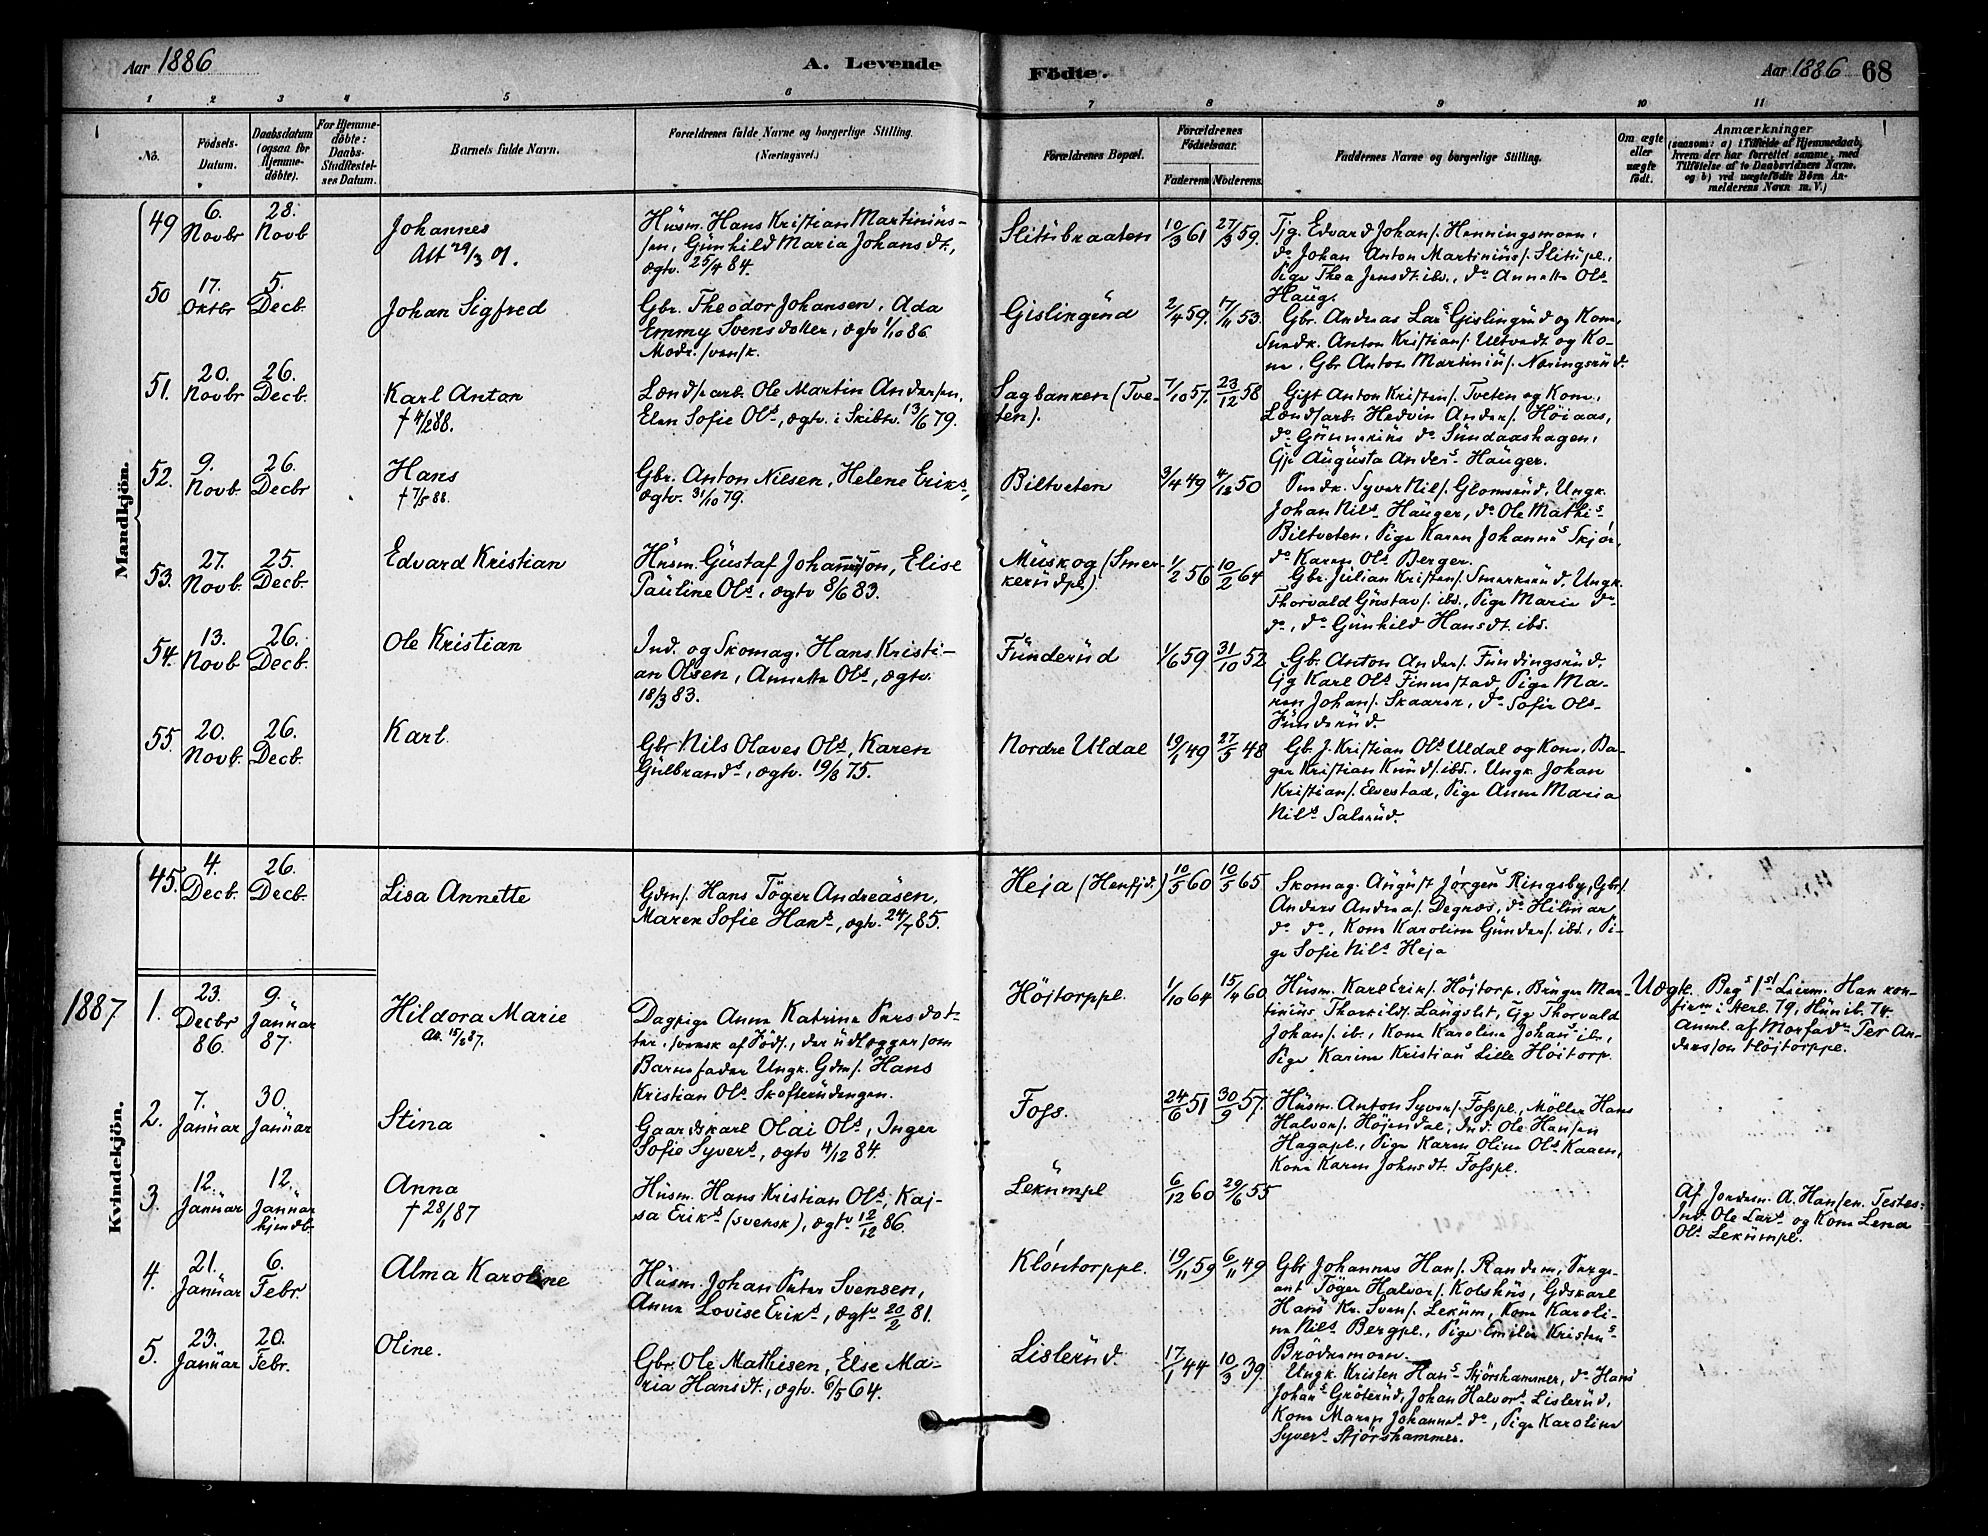 Aar 1886
A. Levende
Födte.
Aar 1886 68
1 2 3 4 5 6 7 8 9 10 11
No.
Födsels-Datum.
Daabsdatum (ogsaa for Hjemme-döbte).
For Hjemme-döbte: Daabs-Stadfæstel-ses Datum.
Barnets fulde Navn.
Forældrenes fulde Navne og borgerlige Stilling. (Næringsvei.)
Forældrenes Bopæl.
Forældrenes Födselsaar.
Faderens Moderens.
Faddernes Navne og borgerlige Stilling.
Om ægte eller uægte født.
Anmærkninger
(saasom: a) i Tilfælde af Hjemmedaab,
hvem der har forrettet samme, med
Tilföielse af to Daabsvidners Navne.
og b) ved uægtefödte Börn An-
melderens Navn m. V.)
Mandkjön.
49 6. Novbr 28. Novb
Johannes
Att 29/3 01.
Husm. Hans Kristian Martinius-
sen, Gunhild Maria Johansdt.,
ægtv. 25/4 84.
Slitubraaten 10/3 61 27/3 59.
Tjg. Edvard Johans. Henningsmoen,
do Johan Anton Martinius. Slitupl.,
Pige Thea Jensdt. ibd., do Annette Ols
Haug.
50 17. Oktbr 5. Decb.
Johan Sigfred
Gbr. Theodor Johansen, Ada
Emmy Svensdotter, ægtv 1/10 86
Modr. svensk.
Gislingrud 2/4 59. 17/11 53.
Gbr. Andreas Lars Gislingrud og Kone,
Smedk. Anton Kristians. Ultvedt og Ko-
ne, Gbr. Anton Martinius. Næringsrud.
51. 20. Novbr 26. Decb.
Karl Anton
† 4/2 88.
Landsarb. Ole Martin Andersen,
Elen Sofie Ols, ægtv. i Skibtv. 13/6 79.
Sagbanken (Tve-
ten). 7/10 57. 23/12 58
Gift Anton Kristens. Tveten og Kone,
Landsarb. Hedvin Anders. Höiaas,
do Gunnerius do Sundaashagen,
Gp Augusta Anders Hauger.
52. 9. Novb. 26. Decbr
Hans
† 7/5 88.
Gbr. Anton Nilsen, Helene Eriks,
ægtv. 31/10 79.
Biltveten 3/4 49 4/12 50
Smedk. Syver Nils. Glomsrud, Ungk.
Johan Nils Hauger, do Ole Mathis
Biltveten, Pige Karen Johannes Skjör,
do Karen Ols Berger.
53. 27. Novb. 25. Decb.
Edvard Kristian
Husm. Gustaf Johansson, Elise
Pauline Ols, ægtv 8/6 83.
Muskog (Smer-
kerudpl). 1/2 56 10/2 64
Gbr. Julian Kristens. Smerkerud, Ungk.
Thorvald Gustavs. ibd., Pige Marie do
do, do Gunhild Hansdt. ibd.
54. 13. Novb 26. Decb.
Ole Kristian
Ind. og Skomag. Hans Kristi-
an Olsen, Annette Ols, ægtv.
18/3 83.
Funderud 1/6 59 31/10 52
Gb. Anton Anders. Fundingsrud,
Gg Karl Ols Finnestad, Pige Ma-
ren Johans. Skaaren, do Sofie Ols
Funderud.
55. 20. Novb. 26. Decb.
Karl.
Gbr Nils Olaves Ols, Karen
Gulbrands, ægtv. 19/8 75.
Nordre Uldal 19/1 49 27/5 48
Gb. J. Kristian Ols Uldal og Kone, Ba-
ger Kristian Knuds. ibd., Ungk. Johan
Kristians. Elvestad, Pige Anne Maria
Nils Salerud.
45. 4. Decb. 26. Decb.
Lisa Annette
Gdms. Hans Töger Andreasen,
Maren Sofie Hans, ægtv. 24/7 85.
Heja (Henfjd.) 10/5 60 10/5 65
Skomag. August Jörgens Ringsby, Gbrs.
Anders Andreas. Degnes, do Hilmar
do do, Kone Karoline Gunders. ibd., Pi-
ge Sofie Nils Heja
1887
Kvindekjön.
1. 23. Decbr 86. 9. Januar 87.
Hildora Marie
Daapige Anne Katrine Persdot-
ter, svensk af Föds., der udlægger som
Barnefader Ungk. Gdms. Hans
Kristian Ols Skofterudengen.
Höjtorppl. 1/10 64 15/4 60
Husm. Karl Eriks. Höjtorp, Bruger Mar-
tinius Thorkilds. Langslet, Gg Thorvald
Johans. ib., Kone Karoline Johans ib.,
Pige Karine Kristians Lille Höitorp.
Uægk.
Begs 1st Leierm. Han kon-
firm. i Herl. 79, Hun ib. 74.
Anml. af Morfadr Per An-
dersson Höjtorppl.
2. 7. Januar 30. Januar
Stina
Gaardskarl Olai Ols, Inger
Sofie Syvers, ægtv 4/12 84.
Foss. 24/6 51 30/9 57.
Husm. Anton Syvers. Fosspl., Möller Hans
Halvors. Höjendal, Ind. Ole Hansen
Hagapl., Pige Karen Oline Ols Kaaen,
Kone Karen Johnsdt. Fosspl.
3. 12. Januar 12. Januar hjmdb.
Anna
† 28/1 87
Husm. Hans Kristian Ols, Kaj-
sa Eriks (svensk), ægtv 12/12 86.
Lekumpl 6/12 60 29/6 55
Af Jordem. A. Hansen. Testes:
Ind. Ole Lars og Kone Lena
Ols Lekumpl.
4. 21. Januar 6. Febr.
Alma Karoline
Husm. Johan Peter Svensen,
Anne Lovise Eriks, ægtv 20/2 81.
Klöntorppl. 19/11 59 6/11 49
Gbr Johannes Hans. Randem, Serge-
ant Töger Halvors. Kolshus, Gdskarl
Hans Kr. Svens. Lekum, Kone Karoli-
ne Nils Bergpl., Pige Emilie Kristens
Brödremoen.
5. 23. Januar 20. Febr.
Oline.
Gbr. Ole Mathisen, Else Ma-
ria Hansdt., ægtv. 6/5 64.
Lislerud. 17/1 44 10/3 39.
Ungk. Kristen Hans Stjörshammer, do Hans
Johans Gröterud, Johan Halvors Lislerud,
Kone Maren Johannes do, Pige Karoline
Syvers Stjörshammer.